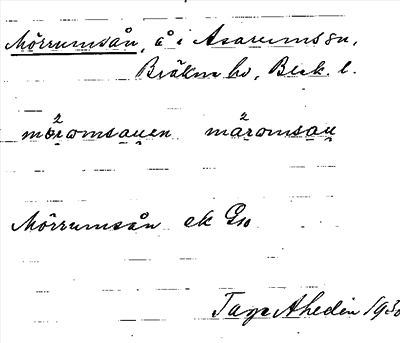 Mörrumsån, å i Asarums sn,
Bräkne hd, Blek. l.
mö²romsauen mä²romsau
Mörrumsån ek G10
Tage Ahedin 193